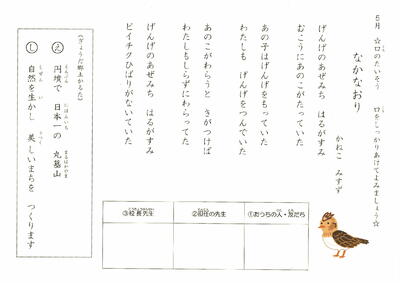 5月 ☆口のたいそう 口をしっかりあけてよみましょう☆
なかなおり
かねこ みすず
げんげのあぜみち はるがすみ
むこうにあのこがたっていた
あの子はげんげをもっていた
わたしも げんげをつんでいた
あのこがわらうと きがつけば
わたしもしらずにわらってた
げんげのあぜみち はるがすみ
ピイチクひばりがないていた
《ぎょうだ郷土かるた》
え 円墳で 日本一の 丸墓山
し 自然を生かし 美しいまちを つくります
①おうちの人・友だち
②担任の先生
③校長先生